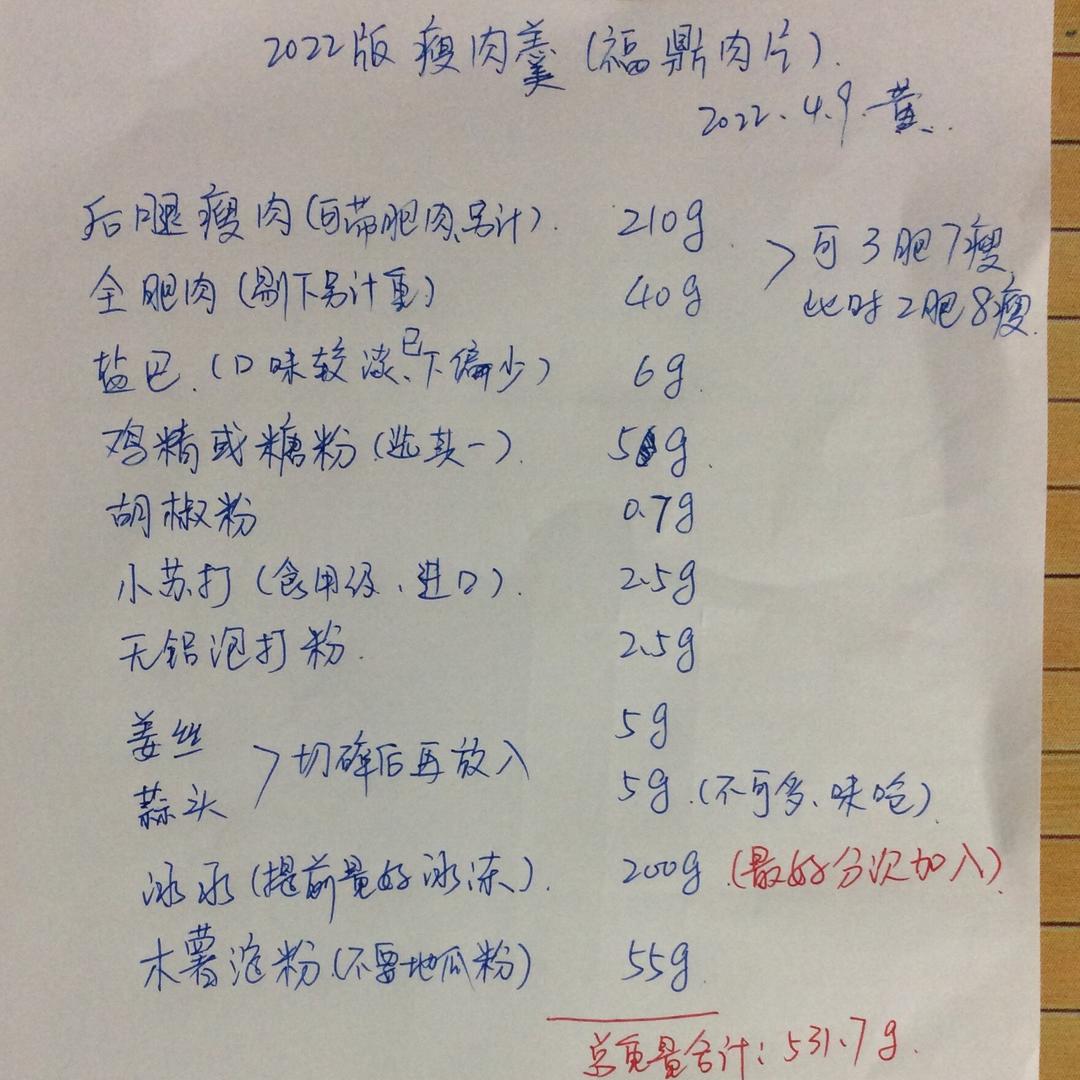 2022版瘦肉羹(福鼎肉片).
2022.4.9.黄.
后腿瘦肉(可带肥肉、另计). 210g.
全肥肉(剔下另计重) 40g
>可3肥7瘦,
此时2肥8瘦.
盐巴.(口味较淡、已下偏少) 6g.
鸡精或糖粉(选其一). 5g.
胡椒粉 0.7g
小苏打(食用级、进口). 2.5g
无铝泡打粉. 2.5g
姜丝 5g
>切碎后再放入
蒜头 5g.(不可多、味呛).
冰水(提前量好冰冻). 200g.(最好分次加入).
木薯淀粉(不要地瓜粉) 55g.
总重量合计:531.7g.